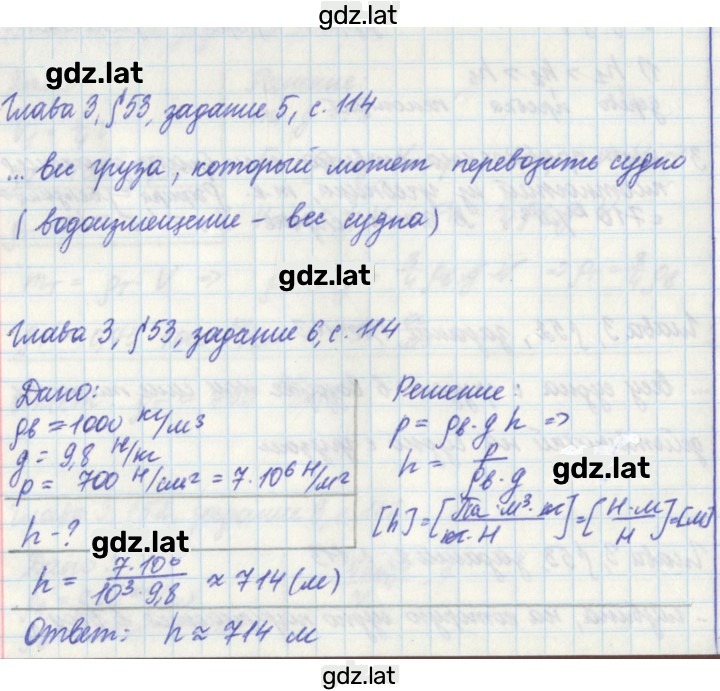 gdz.lat
gdz.lat
Глава 3, §53, задание 5, с. 114
... вес груза, который может перевозить судно
(водоизмещение - вес судна)
gdz.lat
Глава 3, §53, задание 6, с. 114
Дано:
ρв = 1000 кг/м³
g = 9,8 Н/кг
p = 700 Н/см² = 7·10⁶ Н/м²
h - ?
Решение:
p = ρв·g h =>
h = p / ρв·g
gdz.lat
[h] = [Па·м³·кг / кг·Н] = [Н·м / Н] = [м]
gdz.lat
h = 7·10⁶ / 10³·9,8 ≈ 714 (м)
Ответ: h ≈ 714 м
gdz.lat